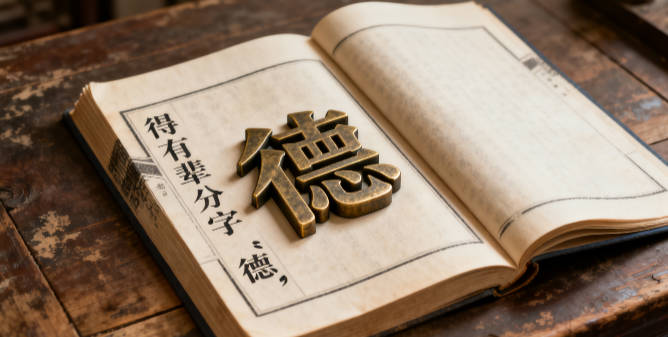 得有辈分字、德,
德